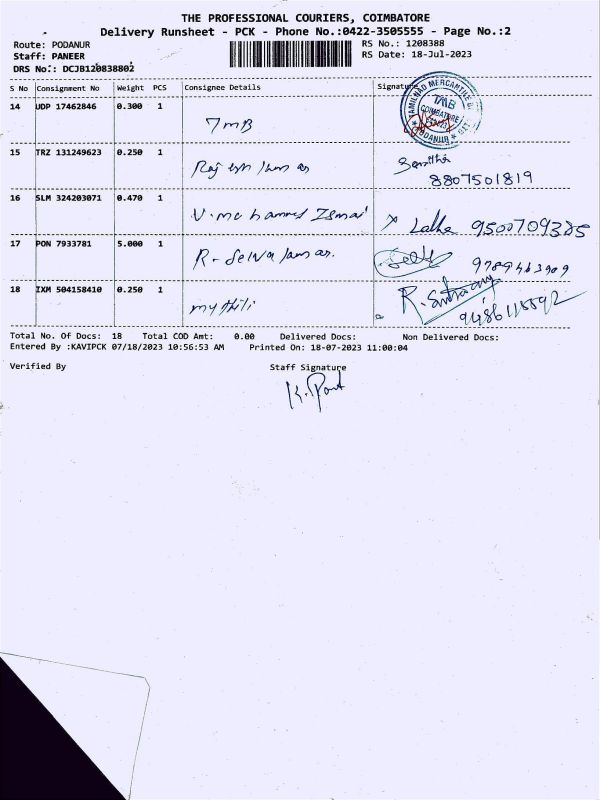 THE PROFESSIONAL COURIERS, COIMBATORE
Delivery Runsheet - PCK - Phone No.:0422-3505555 - Page No.:2
Route: PODANUR RS No.: 1208388
Staff: PANEER RS Date: 18-Jul-2023
DRS No.: DCJB120838802
S No Consignment No Weight PCS Consignee Details Signature
14 UDP 17462846 0.300 1
TMB
TAMILNAD MERCANTILE
TMB
COIMBATORE
PODANUR
15 TRZ 131249623 0.250 1
8807501819
16 SLM 324203071 0.470 1
Latha 9500709385
17 PON 7933781 5.000 1
R-Selva
9789463909
18 IXM 504158410 0.250 1
mythili
Total No. Of Docs: 18 Total COD Amt: 0.00 Delivered Docs: Non Delivered Docs:
Entered By :KAVIPCK 07/18/2023 10:56:53 AM Printed On: 18-07-2023 11:00:04
Verified By Staff Signature